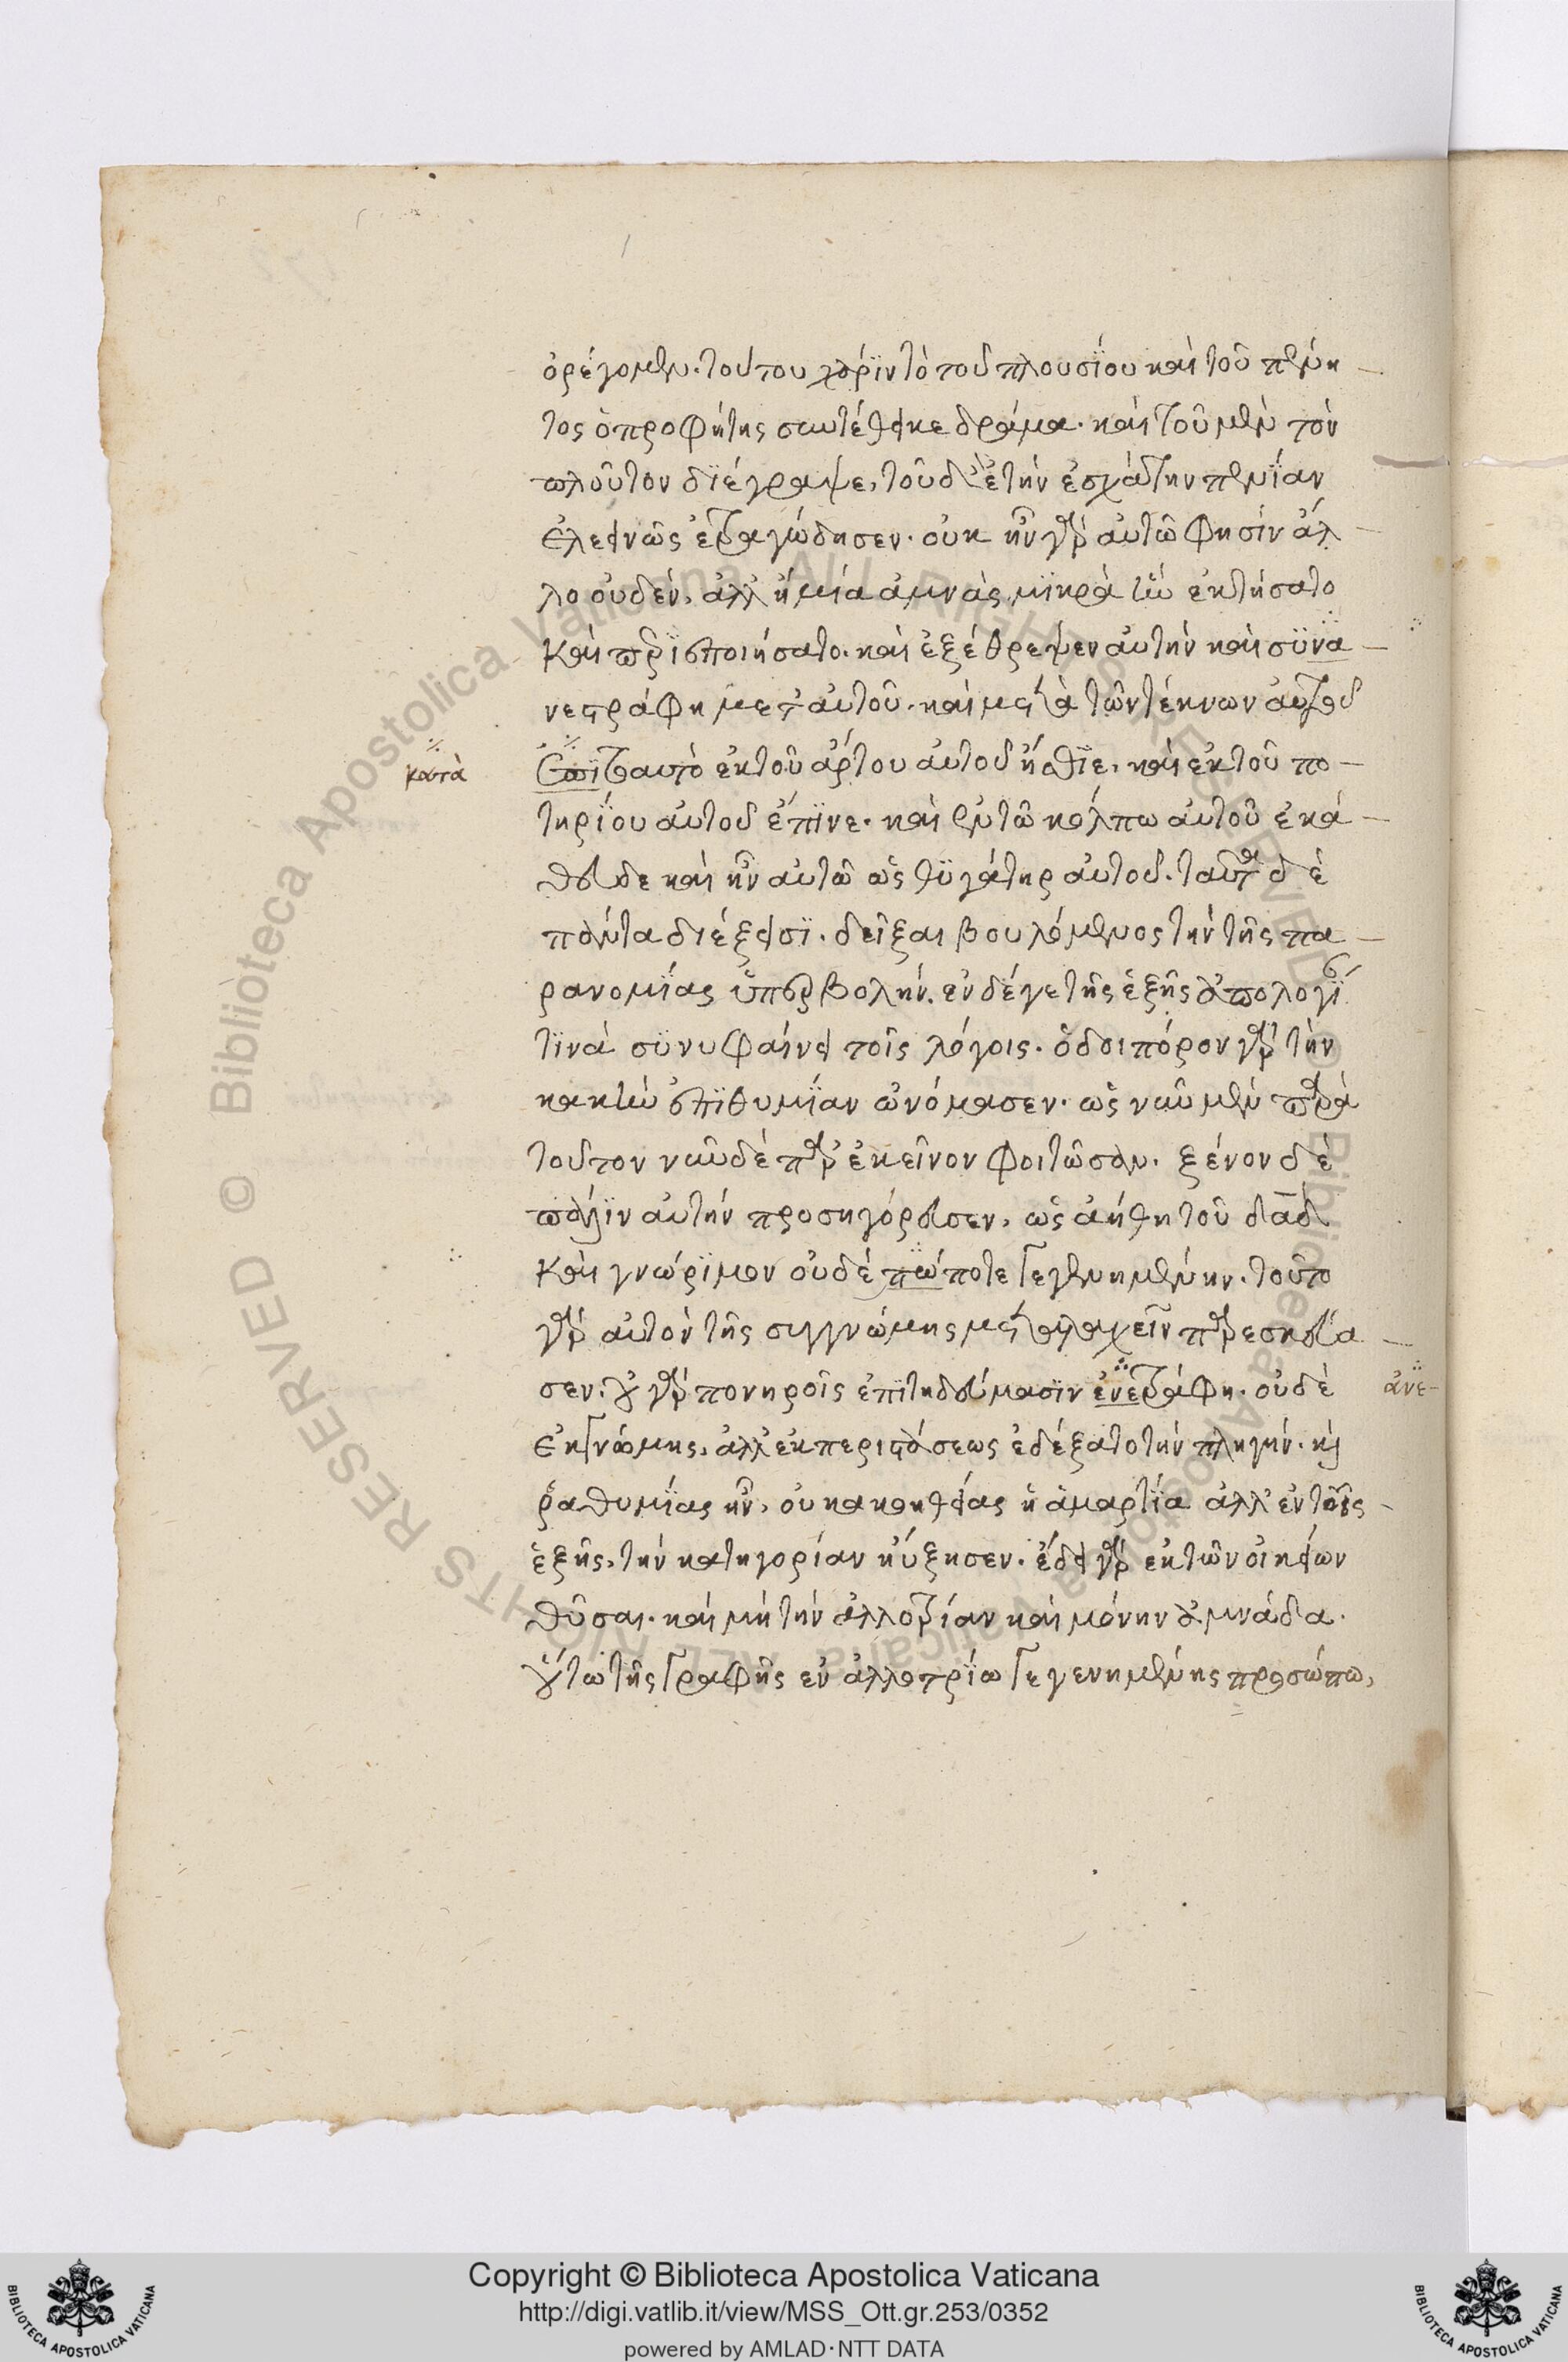 ὀρέγομεν. τούτου χάριν τὸ τοῦ πλουσίου καὶ τοῦ πένη
τος ὁ προφήτης συντέθεικε δράμα. καὶ τοῦ μὲν τὸν
πλοῦτον διέγραψε, τοῦ δὲ τὴν ἐσχάτην πενίαν
ἐλεεινῶς ἐτραγώδησεν. οὐκ ἦν γὰρ αὐτῶ φησὶν ἄλ
λο οὐδὲν, ἀλλ' ἢ μία ἀμνὰς μικρὰ ἣν ἐκτήσατο
καὶ περιεποιήσατο. καὶ ἐξέθρεψεν αὐτὴν καὶ συνα
νετράφη μετ' αὐτοῦ. καὶ μετὰ τῶν τέκνων αὐτοῦ
κατὰ
ἐπιτοαυτὸ ἐκ τοῦ ἄρτου αὐτοῦ ἤσθιε, καὶ ἐκ τοῦ πο
τηρίου αὐτοῦ ἔπινε. καὶ ἐν τῶ κόλπω αὐτοῦ ἐκά
θευδε καὶ ἦν αὐτῶ ὡς θυγάτηρ αὐτοῦ. ταῦτα δὲ
πάντα διέξεισι. δεῖξαι βουλόμενος τὴν τῆς πα
ρανομίας ὑπερβολήν. ἐν δέ γε τῆς ἑξῆς ἀπολογί
τινὰ συνυφαίνει τοῖς λόγοις. ὁδοιπόρον γὰρ τὴν
κακὴν ἐπιθυμίαν ὠνόμασεν. ὡς νῦν μὲν παρὰ
τοῦτον νῦν δὲ παρ' ἐκεῖνον φοιτῶσαν. ξένον δὲ
πάλιν αὐτὴν προσηγόρευσεν, ὡς ἀήθη τοῦ δαδ
καὶ γνώριμον οὐδὲ πώποτε γεγενημένην. τοῦτο
γὰρ αὐτὸν τῆς συγγνώμης μεταλαχεῖν παρεσκεύα
σεν. οὐ γὰρ πονηροῖς ἐπιτηδεύμασιν ἐνετράφη. οὐδὲ
ἀνε
ἐκ γνώμης, ἀλλ' ἐκ περιστάσεως ἐδέξατο τὴν πληγήν. καὶ
ῥαθυμίας ἦν, οὐ κακοηθείας ἡ ἁμαρτία ἀλλ' ἐν τοῖς
ἑξῆς, τὴν κατηγορίαν ηὔξησεν. ἔδει γὰρ ἐκ τῶν οἰκείων
θῦσαι. καὶ μὴ τὴν ἀλλοτρίαν καὶ μόνην ἀμνάδα.
οὕτω τῆς γραφῆς ἐν ἀλλοτρίω γεγενημένης προσώπω,
Copyright © Biblioteca Apostolica Vaticana
http://digi.vatlib.it/view/MSS_Ott.gr.253/0352
powered by AMLAD·NTT DATA